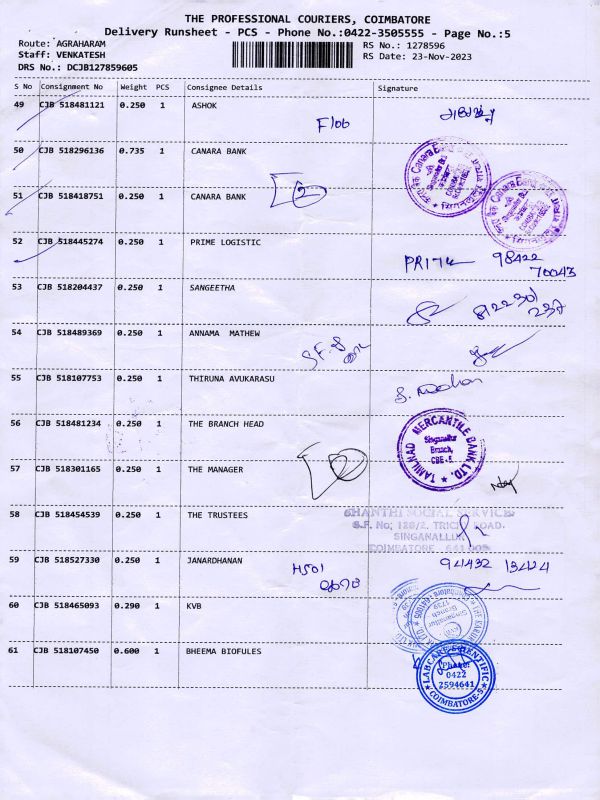 THE PROFESSIONAL COURIERS, COIMBATORE
Delivery Runsheet - PCS - Phone No.:0422-3505555 - Page No.:5
Route: AGRAHARAM
RS No.: 1278596
Staff: VENKATESH
RS Date: 23-Nov-2023
DRS No.: DCJB127859605
S No Consignment No Weight PCS Consignee Details Signature
49 CJB 518481121 0.250 1 ASHOK
F106
50 CJB 518296136 0.735 1 CANARA BANK
51 CJB 518418751 0.250 1 CANARA BANK
2
52 CJB 518445274 0.250 1 PRIME LOGISTIC
98422
70043
53 CJB 518204437 0.250 1 SANGEETHA
54 CJB 518489369 0.250 1 ANNAMA MATHEW
55 CJB 518107753 0.250 1 THIRUNA AVUKARASU
56 CJB 518481234 0.250 1 THE BRANCH HEAD
TAMILNAD MERCANTILE BANK LTD.
Singanallur
Branch,
CBE - 5
57 CJB 518301165 0.250 1 THE MANAGER
58 CJB 518454539 0.250 1 THE TRUSTEES
SHANTHI SOCIAL SERVICES
S.F. No; 128/2. TRICHY ROAD.
SINGANALLUR
COIMBATORE - 641 005
59 CJB 518527330 0.250 1 JANARDHANAN
H501
94432 13424
60 CJB 518465093 0.290 1 KVB
61 CJB 518107450 0.600 1 BHEEMA BIOFULES
LABCARE SCIENTIFIC
Phone:
0422
2594641
COIMBATORE-5